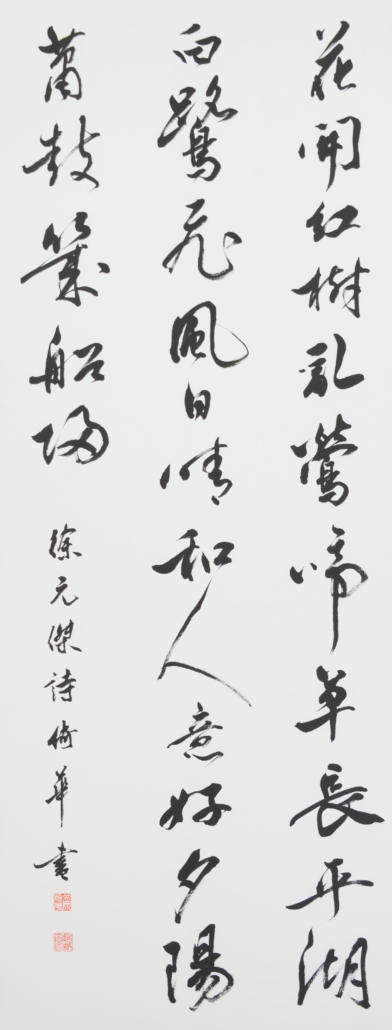 花開紅樹亂鶯啼草長平湖
白鷺飛風日晴和人意好夕陽
蕭鼓幾船歸
徐元傑詩倚華書